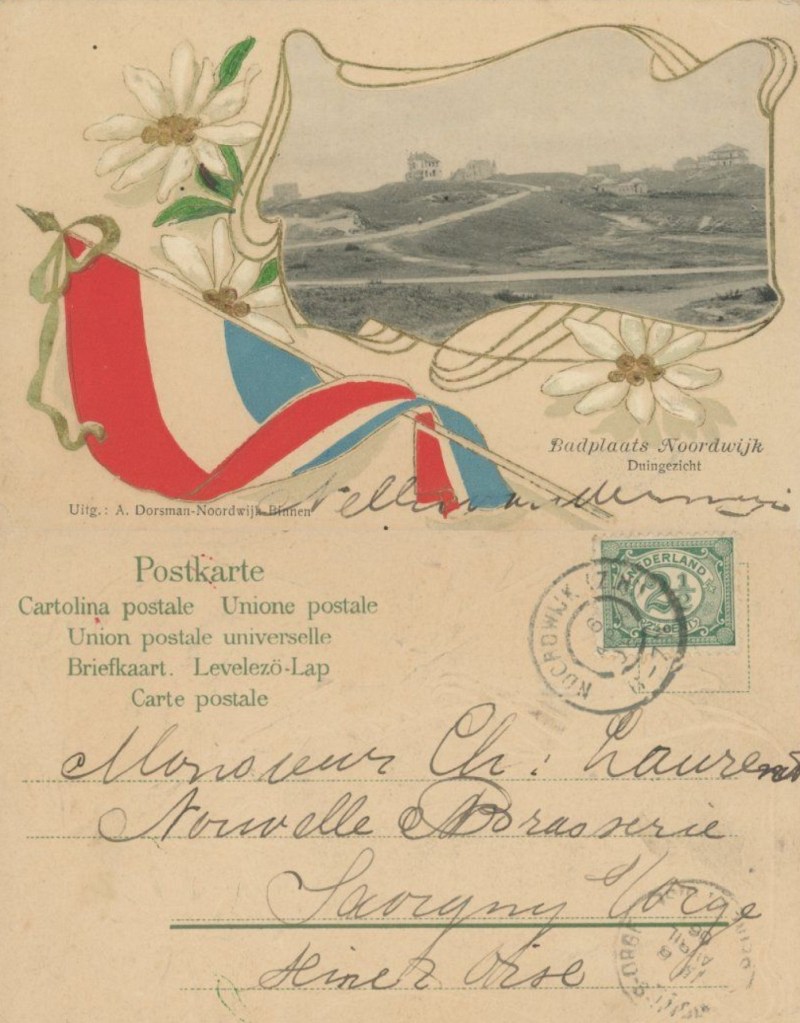 Badplaats Noordwijk
Duingezicht
Uitg.: A. Dorsman-Noordwijk-Binnen
Postkarte
Cartolina postale Unione postale
Union postale universelle
Briefkaart. Levelezö-Lap
Carte postale
NEDERLAND
2½
CENT
NOORDWIJK (Z.H.)
Monsieur Ch: Laurent
Nouvelle Brasserie
Savigny s/Orge
Seine & Oise
AVRIL